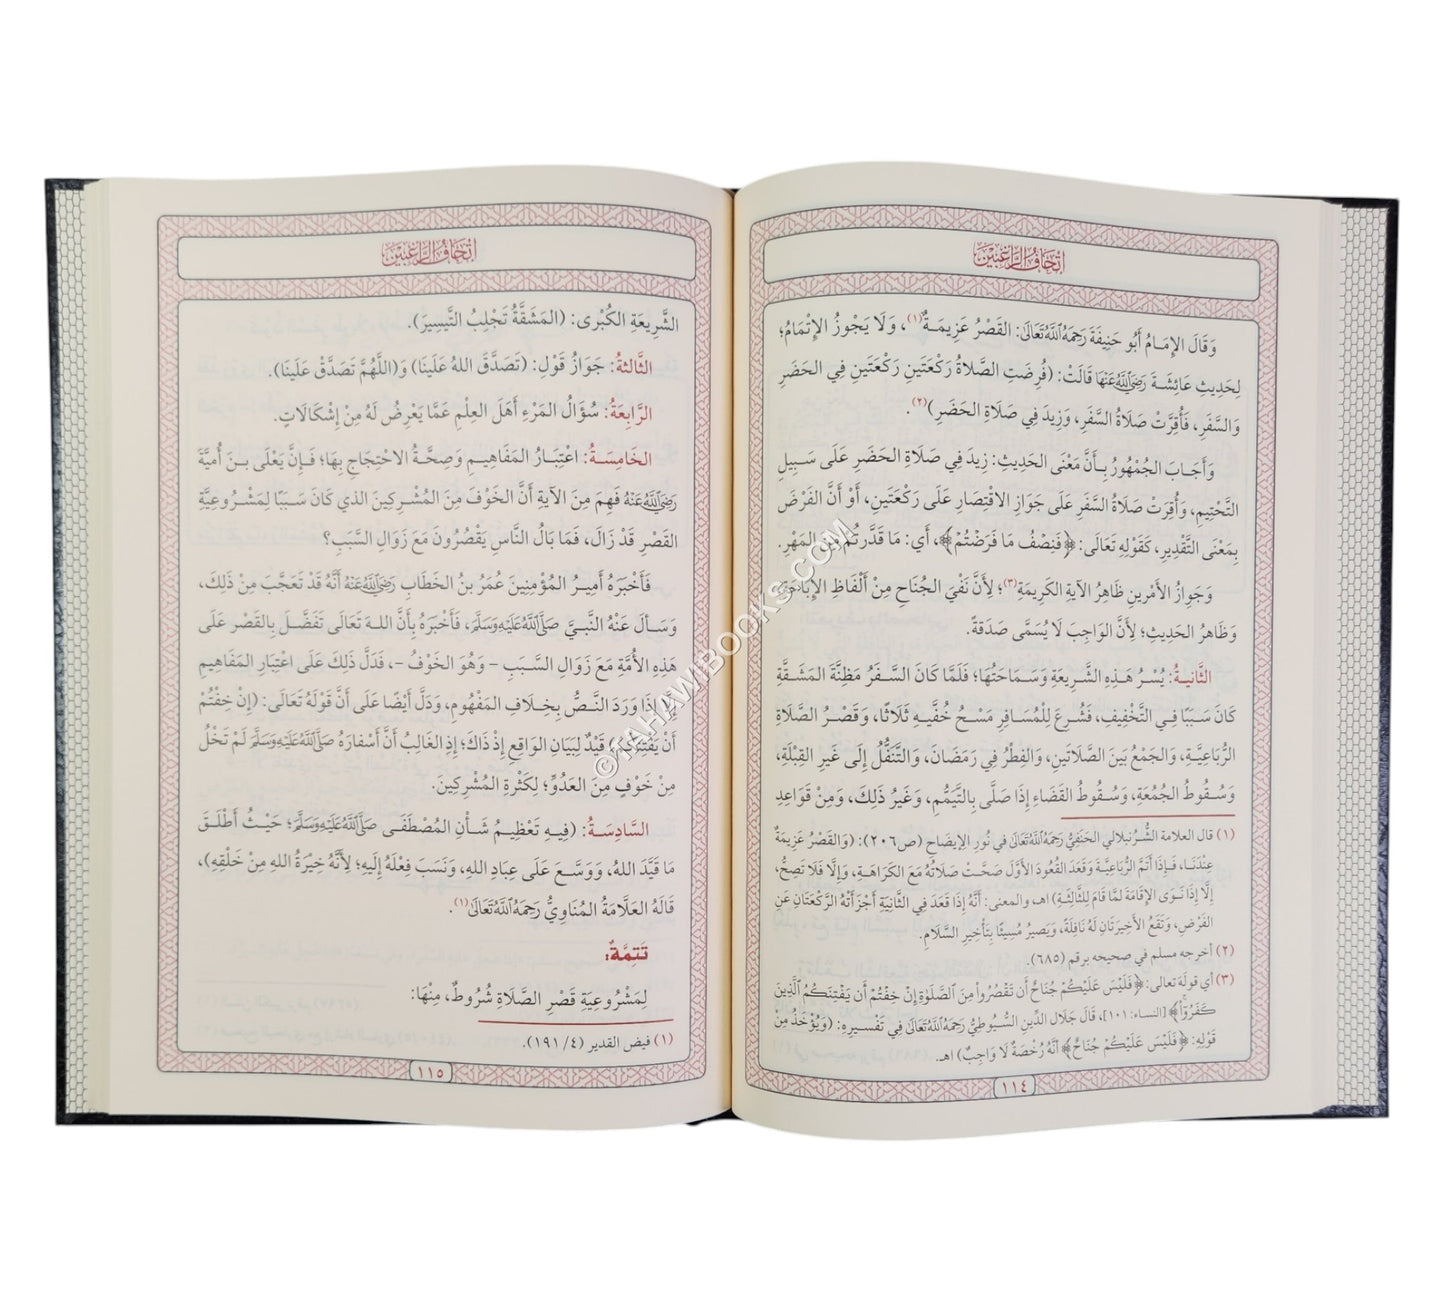 إتحاف الراغبين
وَقَالَ الإِمَامُ أَبُو حَنِيفَةَ رَحِمَهُ اللَّهُ تَعَالَى: القَصْرُ عَزِيمَةٌ(١)، وَلَا يَجُوزُ الإِتْمَامُ؛
لِحَدِيثِ عَائِشَةَ رَضِيَ اللَّهُ عَنْهَا قَالَتْ: (فُرِضَتِ الصَّلَاةُ رَكْعَتَينِ رَكْعَتَينِ فِي الحَضَرِ
وَالسَّفَرِ، فَأُقِرَّتْ صَلَاةُ السَّفَرِ، وَزِيدَ فِي صَلَاةِ الحَضَرِ)(٢).
وَأَجَابَ الجُمْهُورُ بِأَنَّ مَعْنَى الحَدِيثِ: زِيدَ فِي صَلَاةِ الحَضَرِ عَلَى سَبِيلِ
التَّحْتِيمِ، وَأُقِرَتْ صَلَاةُ السَّفَرِ عَلَى جَوَازِ الاقْتِصَارِ عَلَى رَكْعَتَينِ، أَوْ أَنَّ الفَرْضَ
بِمَعْنَى التَّقْدِيرِ، كَقَوْلِهِ تَعَالَى: ﴿فَنِصْفُ مَا فَرَضْتُمْ﴾، أَي: مَا قَدَّرتُم مِنَ المَهْرِ.
وَجَوازُ الأَمْرينِ ظَاهِرُ الآيَةِ الكَرِيمَةِ(٣)؛ لِأَنَّ نَفْيَ الجُنَاحِ مِنْ أَلْفَاظِ الإِبَاحَةِ،
وَظَاهِرُ الحَدِيثِ؛ لِأَنَّ الوَاجِبَ لَا يُسَمَّى صَدَقَةً.
الثَّانِيةُ: يُسْرُ هَذِهِ الشَّرِيعَةِ وَسَمَاحَتُهَا؛ فَلَمَّا كَانَ السَّفَرُ مَظِنَّةَ المَشَقَّةِ
كَانَ سَبَبًا فِي التَّخْفِيفِ، فَشُرِعَ لِلْمُسَافِرِ مَسْحُ خُفَّيهِ ثَلَاثًا، وَقَصْرُ الصَّلَاةِ
الرُّبَاعِيَّةِ، وَالجَمْعُ بَينَ الصَّلَاتَينِ، وَالفِطْرُ فِي رَمَضَانَ، وَالتَّنَفُّلُ إِلَى غَيرِ القِبْلَةِ،
وَسُقُوطُ الجُمُعَةِ، وَسُقُوطُ القَضَاءِ إِذَا صَلَّى بِالتَّيَمُّمِ، وَغَيرُ ذَلِكَ، وَمِنْ قَوَاعِدِ
(١) قال العلامة الشُّرنبلالي الحَنَفِيُّ رَحِمَهُ اللَّهُ تَعَالَى فِي نُورِ الإِيضَاحِ (ص٢٠٦): (وَالقَصْرُ عَزِيمَةٌ
عِنْدَنَا، فَإِذَا أَتَمَّ الرُّبَاعِيَّةَ وَقَعَدَ القُعُودَ الأَوَّلَ صَحَّتْ صَلَاتُهُ مَعَ الكَرَاهَةِ، وَإِلَّا فَلَا تَصِحُّ،
إِلَّا إِذَا نَوَى الإِقَامَةَ لمَّا قَامَ لِلثَّالِثَةِ) اهـ، والمعنى: أَنَّهُ إِذَا قَعَدَ فِي الثَّانِيَةِ أَجْزَأَتْهُ الرَّكْعَتَانِ عَنِ
الفَرْضِ، وَتَقَعُ الأَخِيرَتَانِ لَهُ نَافِلَةً، وَيَصِيرُ مُسِيئًا بِتَأْخِيرِ السَّلَامِ.
(٢) أخرجه مسلم في صحيحه برقم (٦٨٥).
(٣) أي قولَهُ تعالى: ﴿فَلَيْسَ عَلَيْكُمْ جُنَاحٌ أَن تَقْصُرُوا مِنَ الصَّلَوٰةِ إِنْ خِفْتُمْ أَن يَفْتِنَكُمُ الَّذِينَ
كَفَرُوٓا۟﴾ [النساء: ١٠١]، قَالَ جَلَال الدِّينِ السُّيُوطِيُّ رَحِمَهُ اللَّهُ تَعَالَى فِي تَفْسِيرِهِ: (وَيُؤْخَذُ مِنْ
قَوْلِهِ: ﴿فَلَيْسَ عَلَيْكُمْ جُنَاحٌ﴾ أَنَّهُ رُخْصَةٌ لَا وَاجِبٌ) اهـ.
١١٤
إتحاف الراغبين
الشَّرِيعَةِ الكُبْرَى: (المَشَقَّةُ تَجْلِبُ التَّيسِيرَ).
الثَّالثةُ: جَوَازُ قَولِ: (تَصَدَّقَ اللهُ عَلَينَا) وَ(اللَّهُمَّ تَصَدَّقْ عَلَينَا).
الرَّابِعَةُ: سُؤَالُ المَرْءِ أَهَلَ العِلْمِ عَمَّا يَعْرِضُ لَهُ مِنْ إِشْكَالَاتٍ.
الخَامِسَةُ: اعْتِبَارُ المَفَاهِيمِ وَصِحَّةُ الاحْتِجَاجِ بِهَا؛ فَإِنَّ يَعْلَى بنَ أُميَّةَ
رَضِيَ اللَّهُ عَنْهُ فَهِمَ مِنَ الآيَةِ أَنَّ الخَوْفَ مِنَ المُشْرِكِينَ الذي كَانَ سَبَبًا لِمَشْرُوعِيَّةِ
القَصْرِ قَدْ زَالَ، فَمَا بَالُ النَّاسِ يَقْصُرُونَ مَعَ زَوَالِ السَّبَبِ؟
فَأَخْبَرَهُ أَمِيرُ المُؤْمِنِينَ عُمَرُ بنُ الخَطَّابِ رَضِيَ اللَّهُ عَنْهُ أَنَّهُ قَدْ تَعَجَّبَ مِنْ ذَلِكَ،
وَسَأَلَ عَنْهُ النَّبِيَّ صَلَّى اللَّهُ عَلَيْهِ وَسَلَّمَ، فَأَخْبَرَهُ بِأَنَّ اللهَ تَعَالَى تَفَضَّلَ بِالقَصْرِ عَلَى
هَذِهِ الأُمَّةِ مَعَ زَوَالِ السَّبَبِ - وَهُوَ الخَوْفُ -، فَدَلَّ ذَلِكَ عَلَى اعْتِبَارِ المَفَاهِيمِ
إِلَّا إِذَا وَرَدَ النَّصُّ بِخِلَافِ المَفْهُومِ، وَدَلَّ أَيْضًا عَلَى أَنَّ قَوْلَهُ تَعَالَى: (إِنْ خِفْتُمْ
أَنْ يَفْتِنَكُمُ) قَيْدٌ لِبَيَانِ الوَاقِعِ إِذْ ذَاكَ؛ إِذِ الغَالِبُ أَنَّ أَسْفَارَهُ صَلَّى اللَّهُ عَلَيْهِ وَسَلَّمَ لَمْ تَخْلُ
مِنْ خَوْفٍ مِنَ العَدُوِّ؛ لِكَثْرةِ المُشْرِكِينَ.
السَّادِسَةُ: (فِيهِ تَعْظِيمُ شَأْنِ المُصْطَفَى صَلَّى اللَّهُ عَلَيْهِ وَسَلَّمَ؛ حَيْثُ أَطْلَقَ
مَا قَيَّدَ اللهُ، وَوَسَّعَ عَلَى عِبَادِ اللهِ، وَنَسَبَ فِعْلَهُ إِلَيهِ؛ لِأَنَّهُ خِيَرَةُ اللهِ مِنْ خَلْقِهِ)،
قَالَهُ العَلَّامَةُ المُنَاوِيُّ رَحِمَهُ اللَّهُ تَعَالَى(١).
تَتِمَّةٌ:
لِمَشْرُوعِيَةِ قَصْرِ الصَّلَاةِ شُرُوطٌ، مِنْهَا:
(١) فيض القدير (٤/ ١٩١).
١١٥
©TAHAWIBOOKS.COM